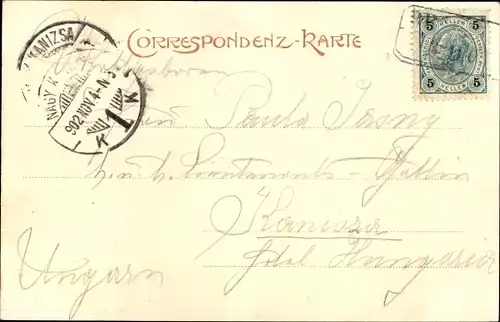 CORRESPONDENZ-KARTE
5 5
HELLER
5 5
KANIZSA
NAGY K
902 NOV 4 - N 3
1
K
Paula Jasny
k. u. k. Lieutenants - Gattin
Kanizsa
Hotel Hungaria
Ungarn